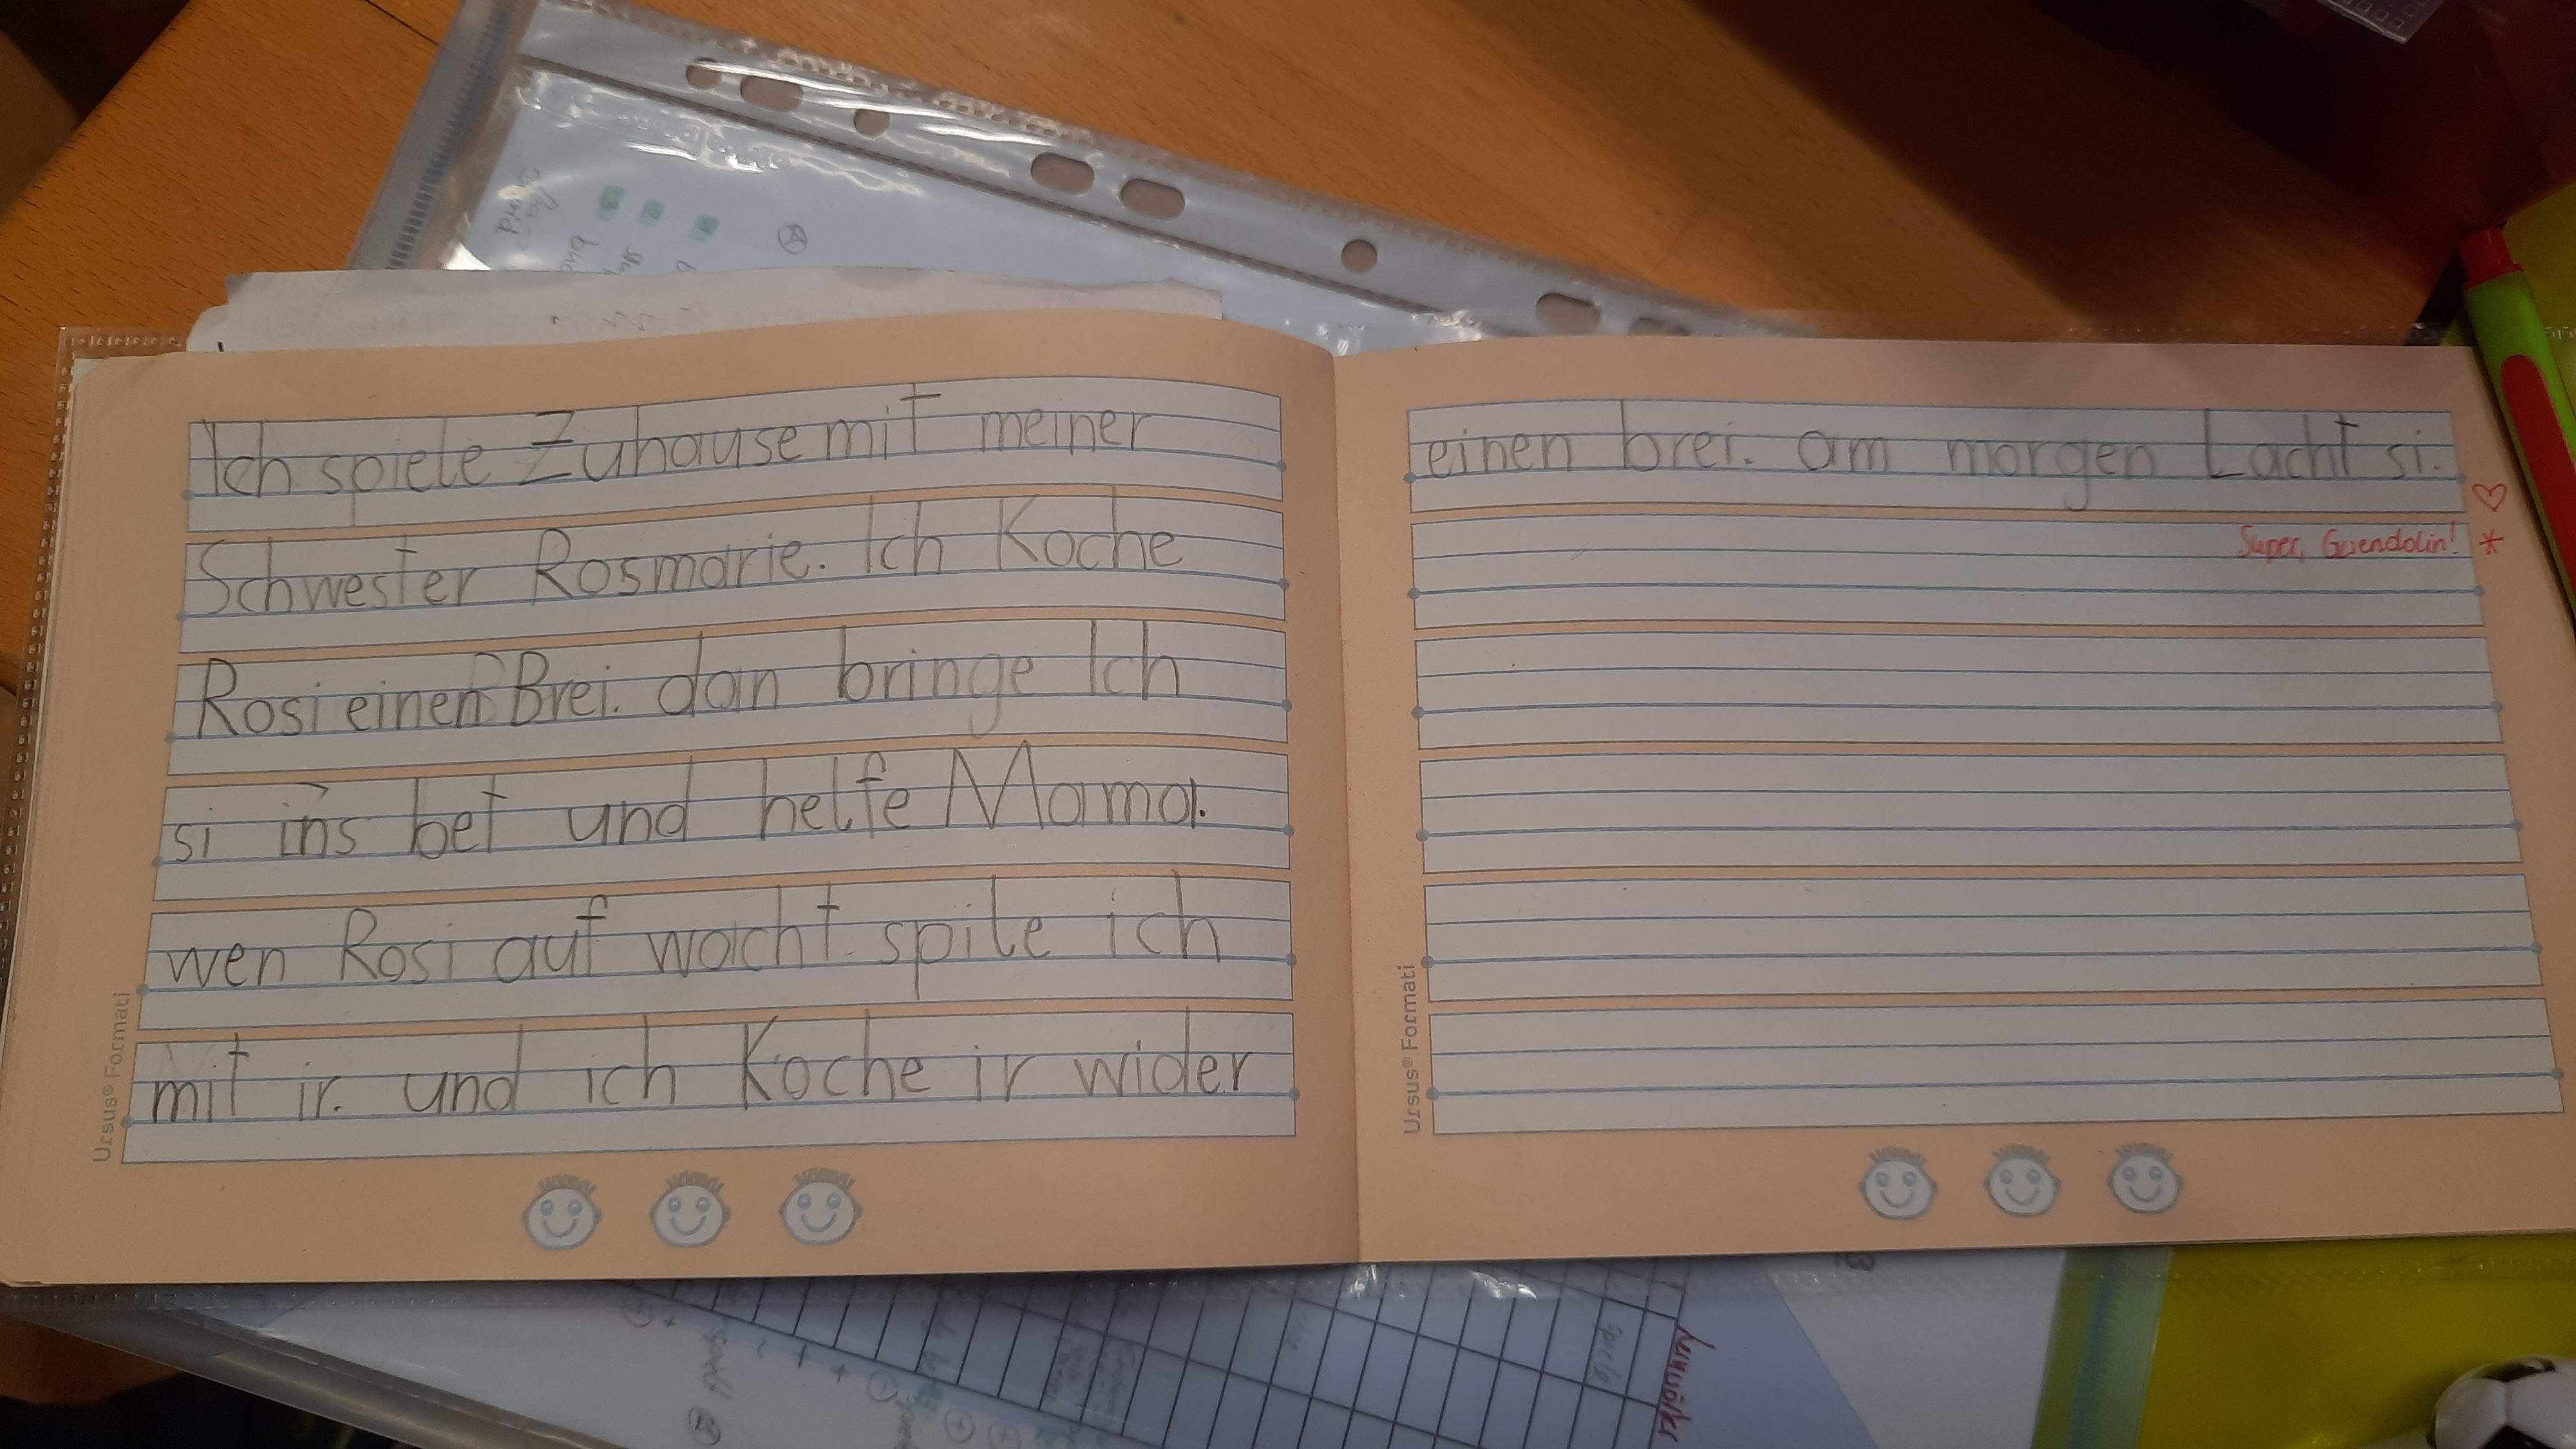 Ich spiele Zuhause mit meiner
Schwester Rosmarie. Ich Koche
Rosi einen Brei. dan bringe Ich
si ins bet und helfe Mama.
wen Rosi auf wacht spile ich
mit ir. und ich Koche ir wider
Ursus® Formati
einen brei. am morgen Lacht si.
Super, Gwendolin!
Ursus® Formati
Lernwörter